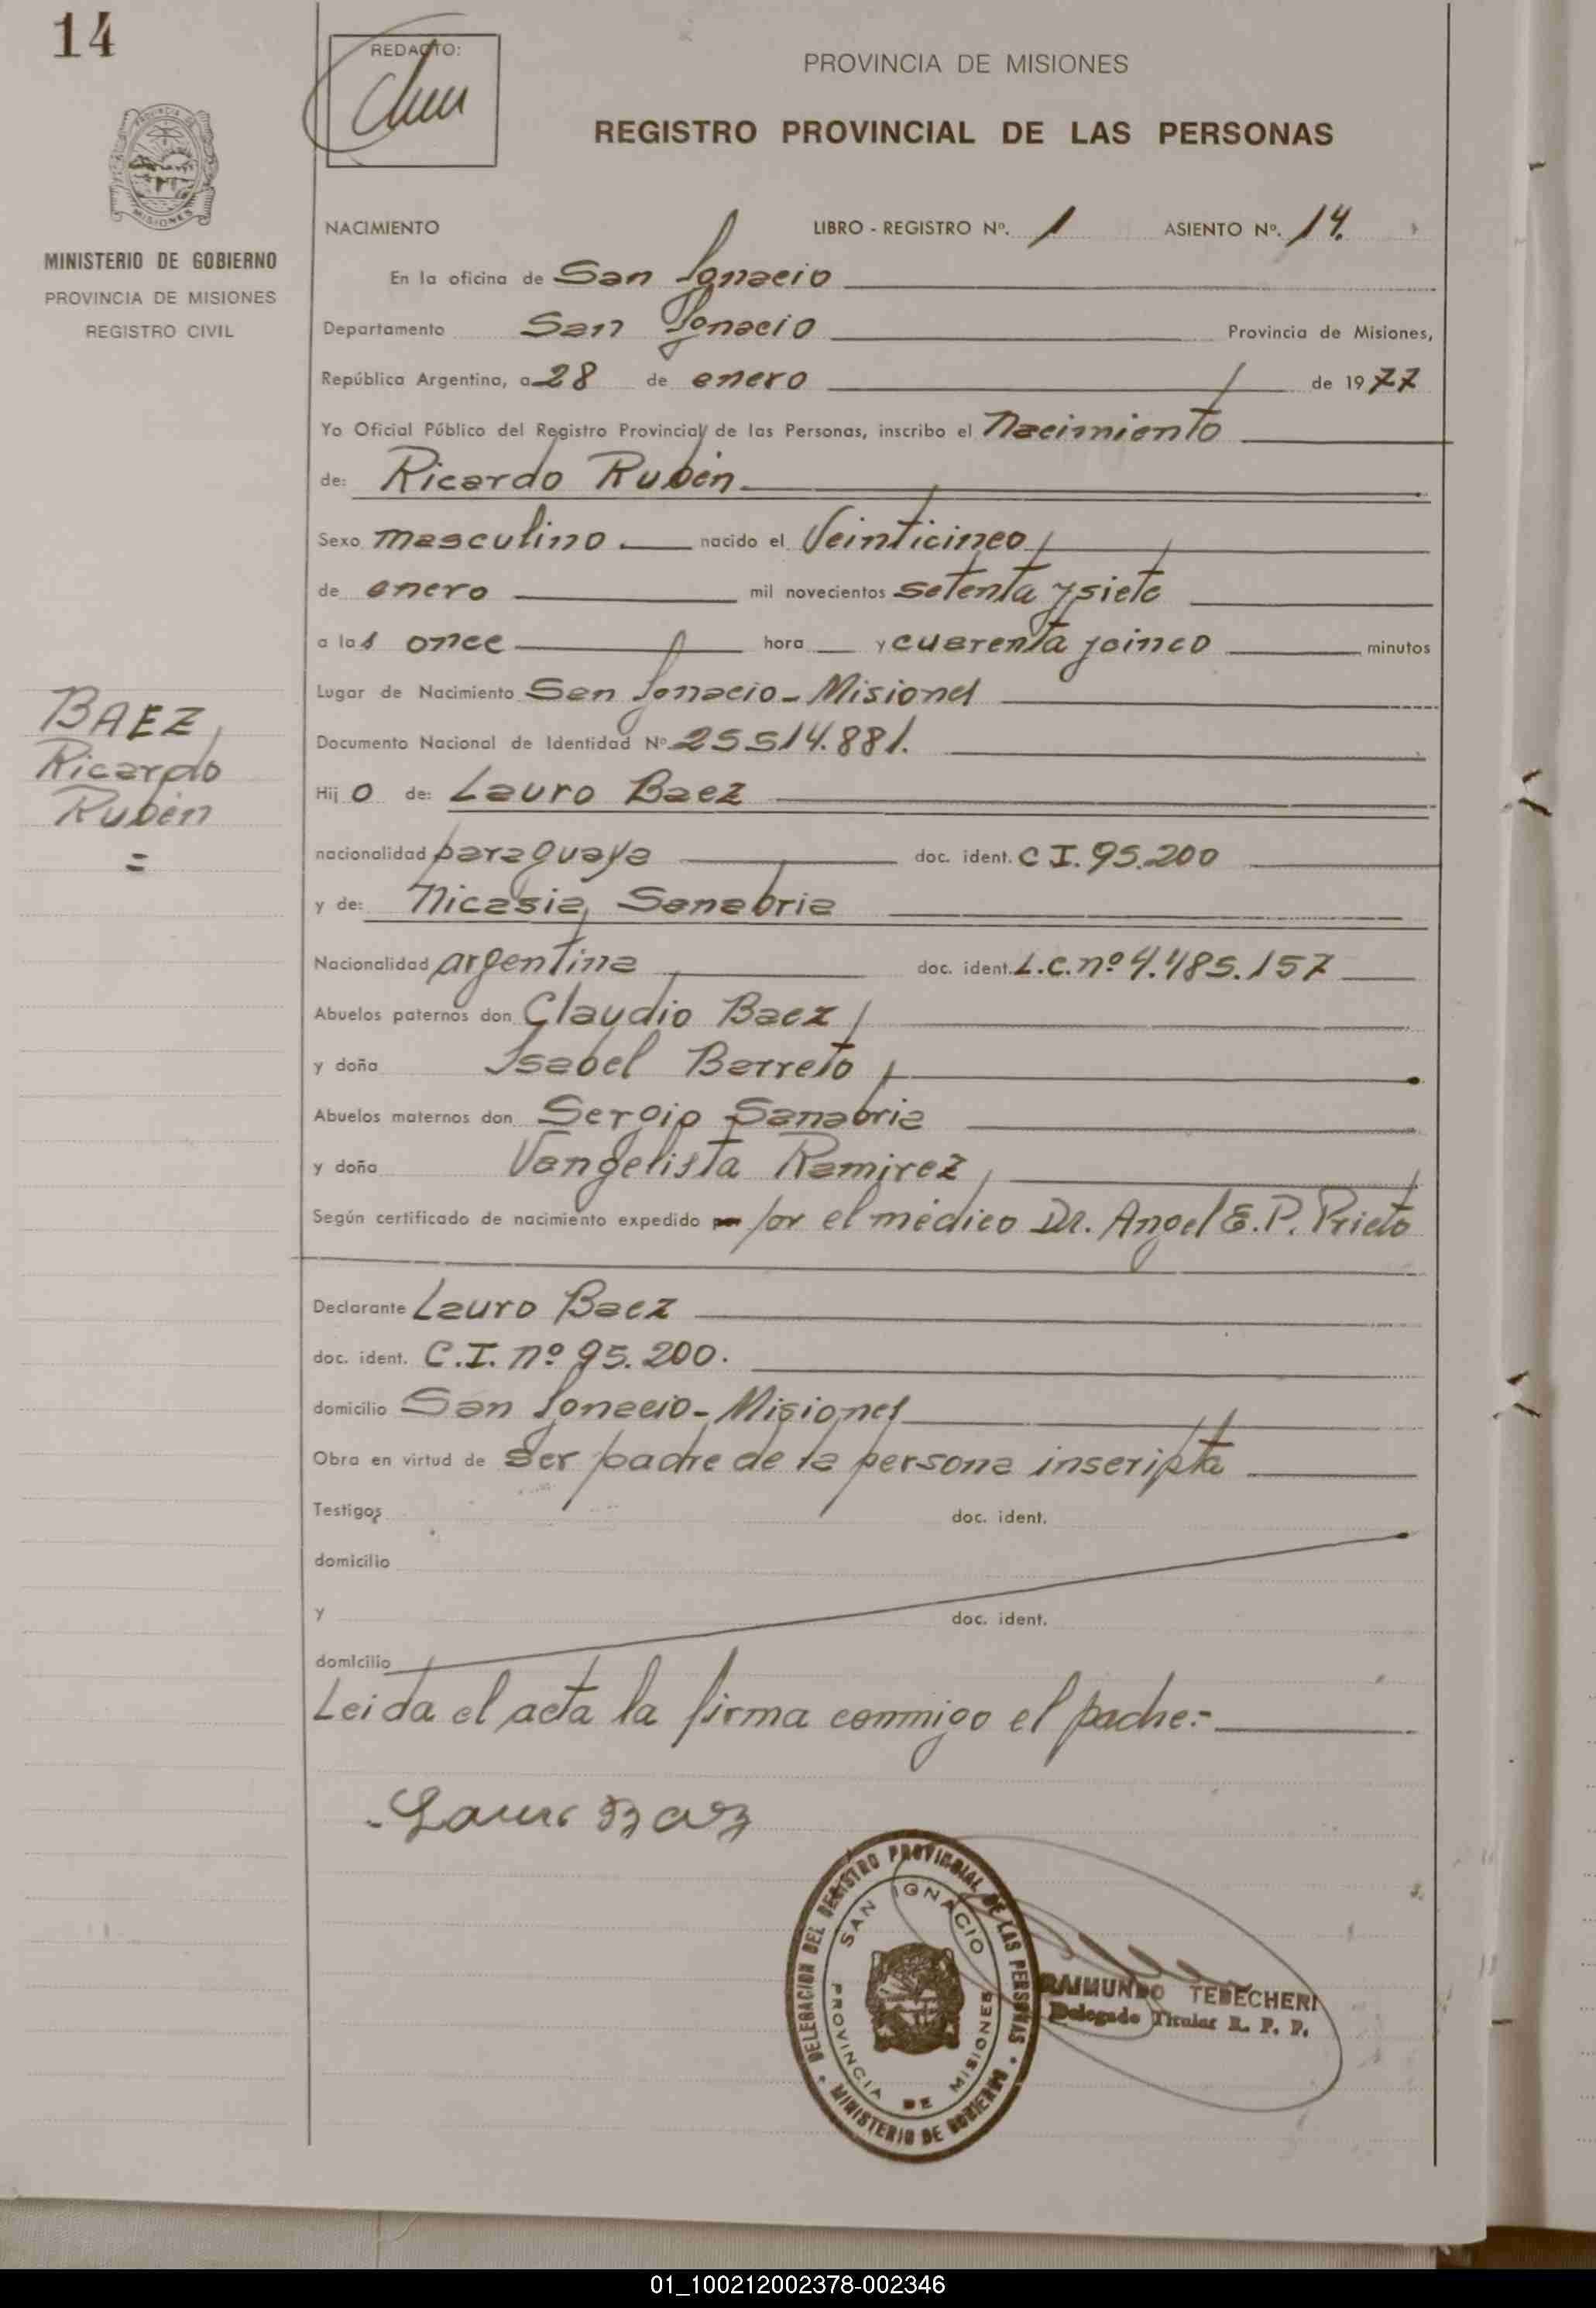 14
REDACTO:
PROVINCIA DE MISIONES
REGISTRO PROVINCIAL DE LAS PERSONAS
MINISTERIO DE GOBIERNO
PROVINCIA DE MISIONES
REGISTRO CIVIL
NACIMIENTO LIBRO - REGISTRO Nº. 1 ASIENTO Nº. 14.
En la oficina de San Ignacio
Departamento San Ignacio Provincia de Misiones,
República Argentina, a 28 de enero de 1977
Yo Oficial Público del Registro Provincial de las Personas, inscribo el Nacimiento
de: Ricardo Rubén
Sexo masculino nacido el Veinticinco
de enero mil novecientos setenta y siete
a las once hora y cuarenta y cinco minutos
Lugar de Nacimiento San Ignacio - Misiones
BAEZ
Ricardo
Rubén
=
Documento Nacional de Identidad Nº 25514.881.
Hijo de: Lauro Baez
nacionalidad paraguaya doc. ident. C I. 95.200
y de: Nicasia Sanabria
Nacionalidad argentina doc. ident. L.C. nº 4.485.157
Abuelos paternos don Claudio Baez
y doña Isabel Barreto
Abuelos maternos don Sergio Sanabria
y doña Vangelista Ramirez
Según certificado de nacimiento expedido por el médico Dr. Angel E. P. Prieto
Declarante Lauro Baez
doc. ident. C.I. nº 95.200.
domicilio San Ignacio - Misiones
Obra en virtud de ser padre de la persona inscripta
Testigos doc. ident.
domicilio
y doc. ident.
domicilio
Leida el acta la firma conmigo el padre.-
Lauro Baez
DELEGACION DEL REGISTRO PROVINCIAL DE LAS PERSONAS
MINISTERIO DE GOBIERNO
SAN IGNACIO
PROVINCIA DE MISIONES
RAIMUNDO TEBECHERI
Delegado Titular R. P. P.
01_100212002378-002346